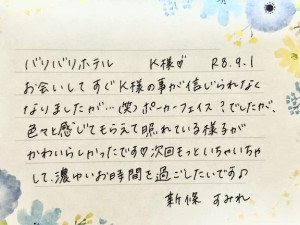 バリバリホテル K様♡ R8.9.1
お会いしてすぐK様の事が信じられなく
なりましたが…(笑)ポーカーフェイス?でしたが、
色々と感じてもらえて照れている様子が
かわいらしかったです♡次回もっといちゃいちゃ
して、濃ゆいお時間を過ごしたいです♪
新條 すみれ